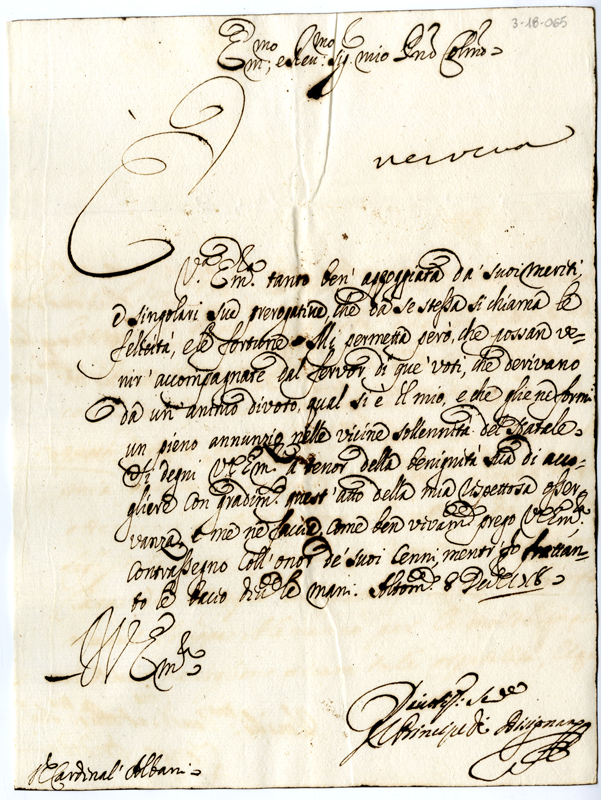 3-18-065
Em.mo, e Rev.mo Sig. mio P͠ron Colmo
È
V.ra Em.za tanto ben' appoggiata da' suoi meriti,
e singolari sue prerogative, che da se stessa si chiama le
felicità, e le fortune. Mi permetta però, che possan ve=
nir' accompagnate dal fervor di que' voti, che derivano
da un' animo divoto, qual si è il mio, e che glie ne formi
un pieno annunzio nelle vicine sollennità del S. Natale.
Si degni V.Em. a tenor della benignità sua di acco=
gliere con gradim.to quest' atto della mia rispettosa osser=
vanza, e me ne faccia, come ben vivam.te prego V.Em.za
contrassegno coll' onor de' suoi cenni, mentr' io frattan=
to le bacio le mani.
D V Em.za
Il Principe di Bisignano
S.r Cardinal' Albani